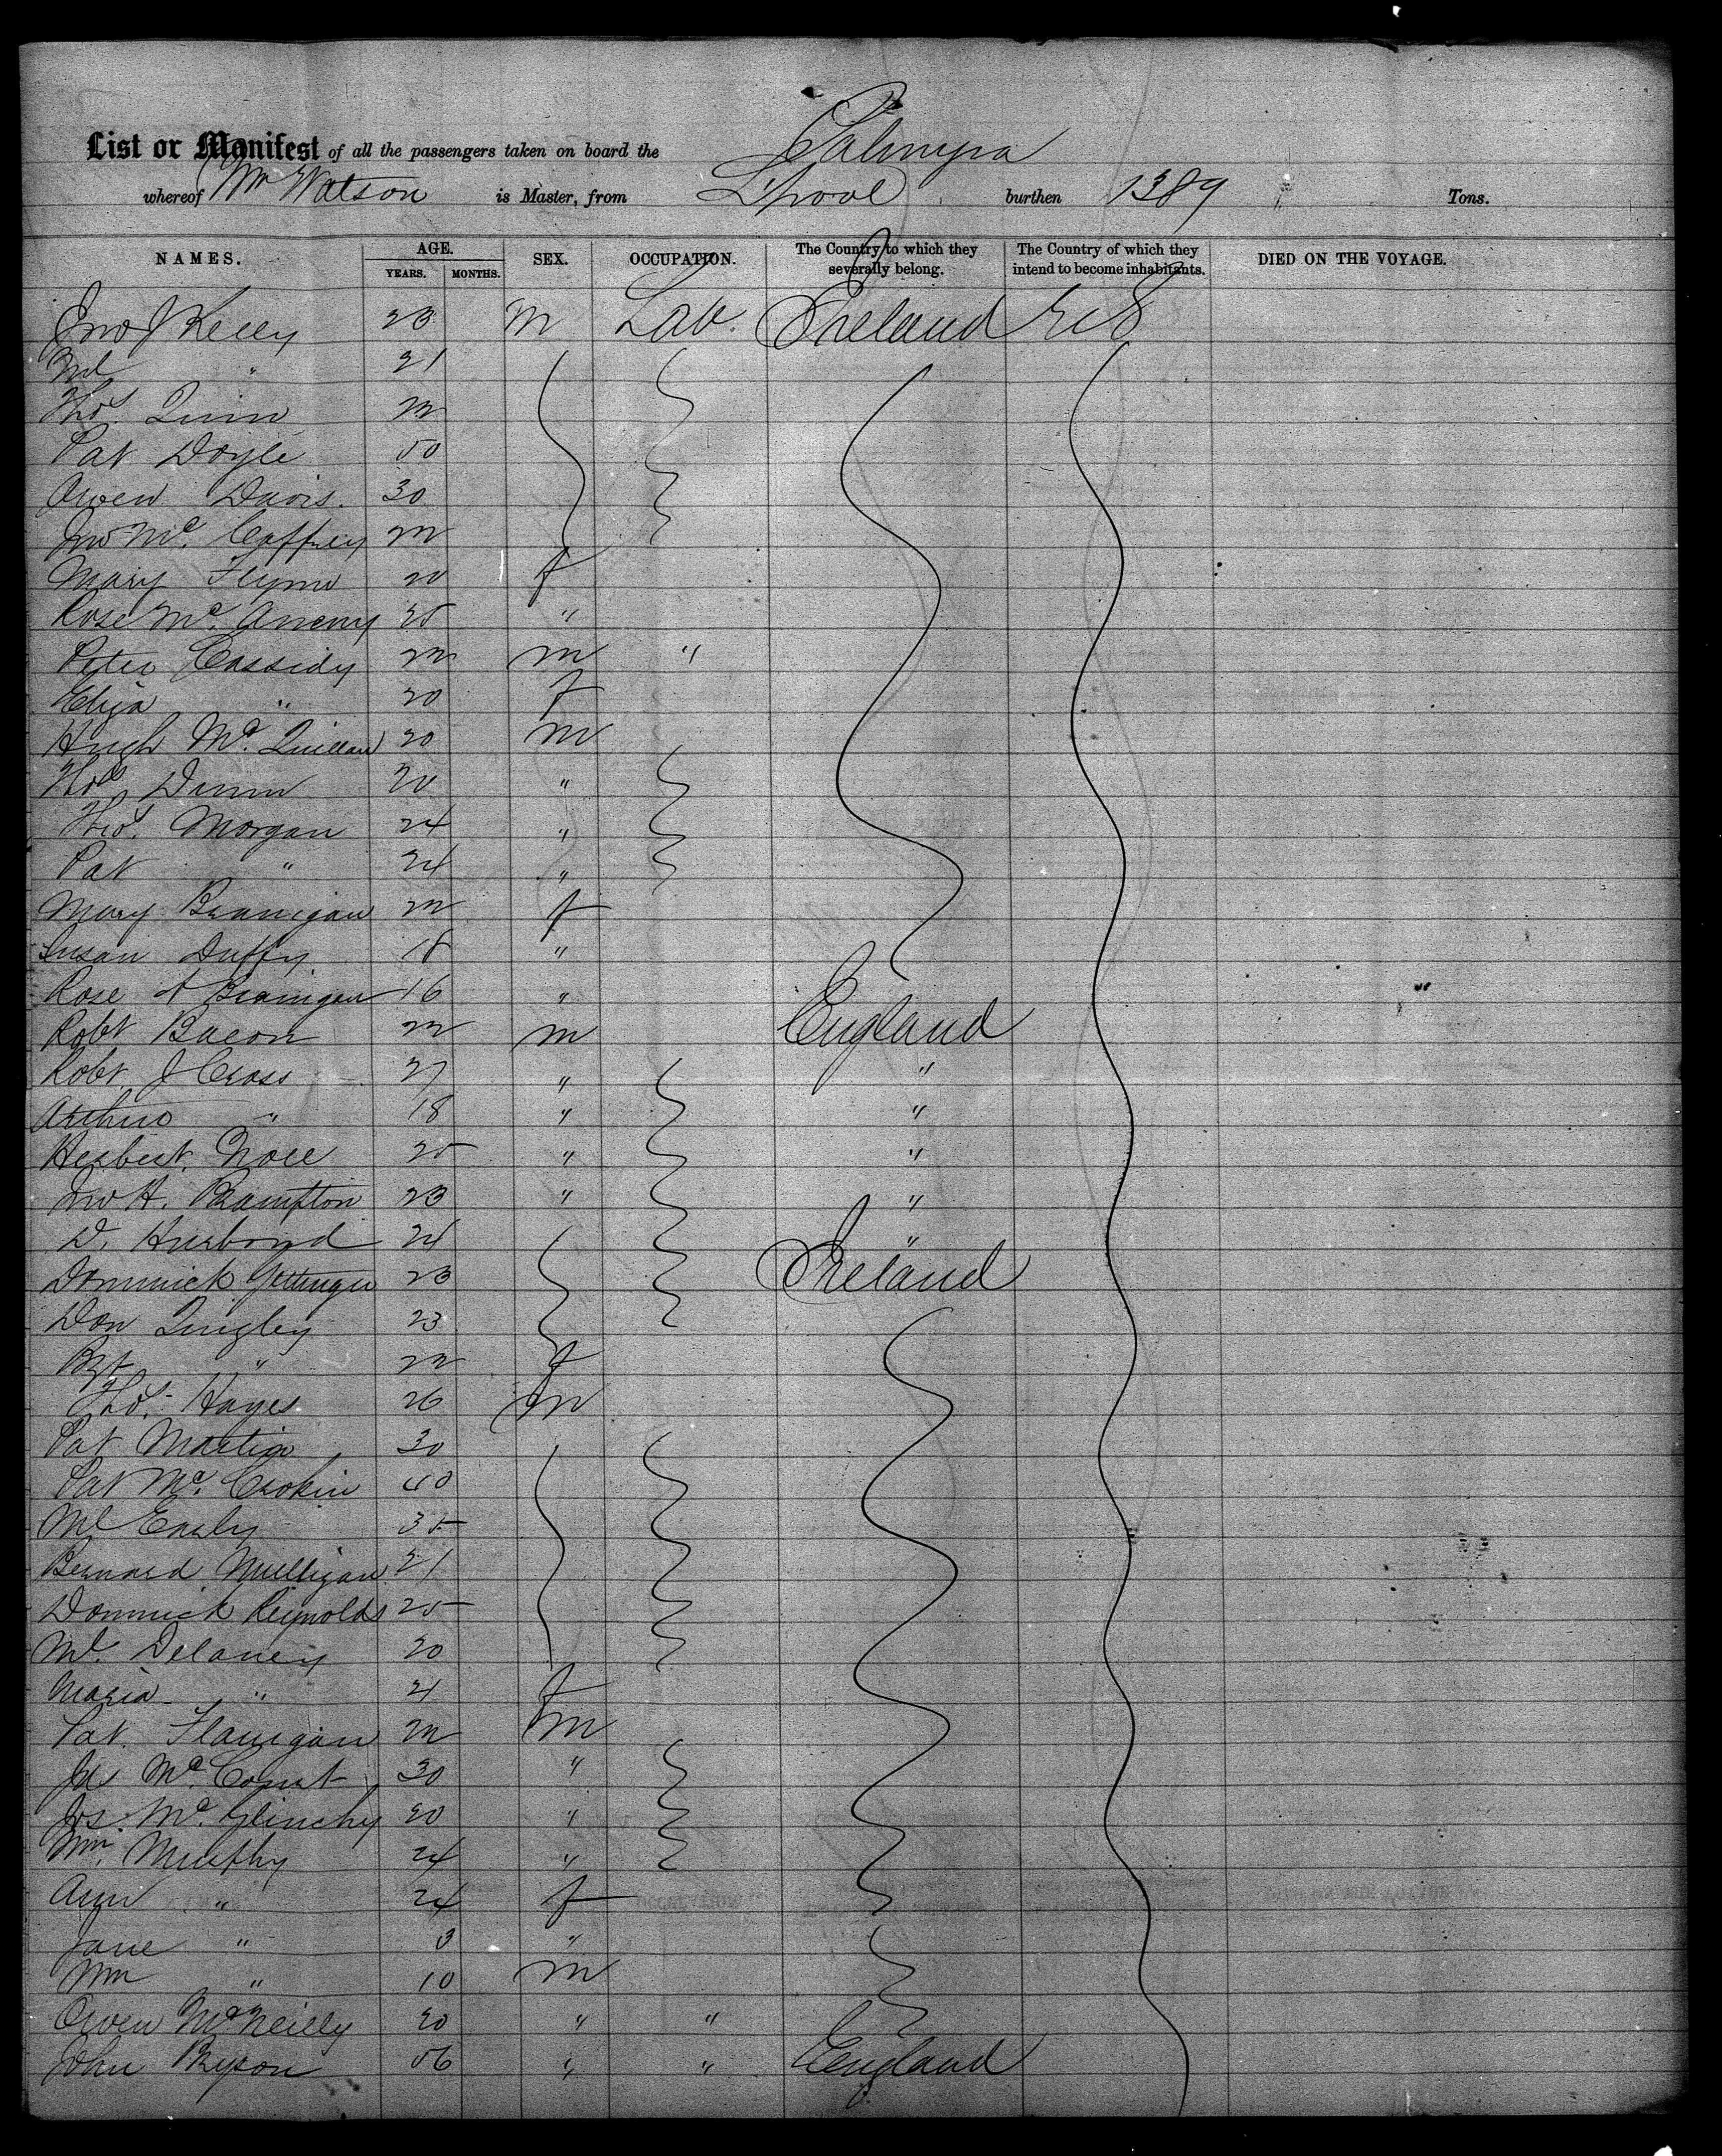 List or Manifest of all the passengers taken on board the Palmyra
whereof Wm Watson is Master, from L'pool burthen 1389 Tons.
NAMES. AGE. SEX. OCCUPATION. The Country to which they severally belong. The Country of which they intend to become inhabitants. DIED ON THE VOYAGE.
YEARS. MONTHS.
Jno J Kelly 23 m Lab. Ireland U S
Ml " 21
Thos Quinn 22
Pat Doyle 50
Owen Davis. 30
Jno Mc Caffrey 22
Mary Flynn 20 f
Rose Mc 25 "
Peter Cassidy 22 m "
Eliza " 20 f
Hugh Mc Quillan 20 m
Thos Dunn 20 "
Thos. Morgan 24 "
Pat " 24 "
Mary Branigan 22 f
Susan Duffy 18 "
Rose A Branigan 16 "
Robt Bacon 22 m England
Robt J Cross 27 " "
Arthur " 18 " "
Herbert Noll 25 " "
Jno H. Brampton 23 " "
D. Husband 24 "
Dominick 23 Ireland
Don Quigley 23
Bgt " 22 f
Thos. Hayes 26 m
Pat Martin 30
Pat Mc 40
Ml Early 35
Bernard Mulligan 21
Dominick Reynolds 25
Ml. Delaney 20
Maria " 21 f
Pat. Flanigan 22 m
Js Mc Court 30 "
Jos. Mc Glinchy 20 "
Wm. Murphy 24 "
Ann " 24 f
Jane " 3 "
Wm " 10 m
Owen McNeilly 20 " "
John Bryson 56 " " England